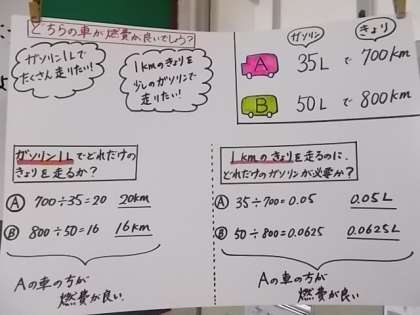 どちらの車が燃費が良いでしょう?
ガソリン1Lで
たくさん走りたい!
1kmのきょりを
少しのガソリンで
走りたい!
ガソリン きょり
A 35Lで 700km
B 50Lで 800km
ガソリン1Lでどれだけの
きょりを走るか?
A 700÷35=20 20km
B 800÷50=16 16km
Aの車の方が
燃費が良い
1kmのきょりを走るのに、
どれだけのガソリンが必要か?
A 35÷700=0.05 0.05L
B 50÷800=0.0625 0.0625L
Aの車の方が
燃費が良い